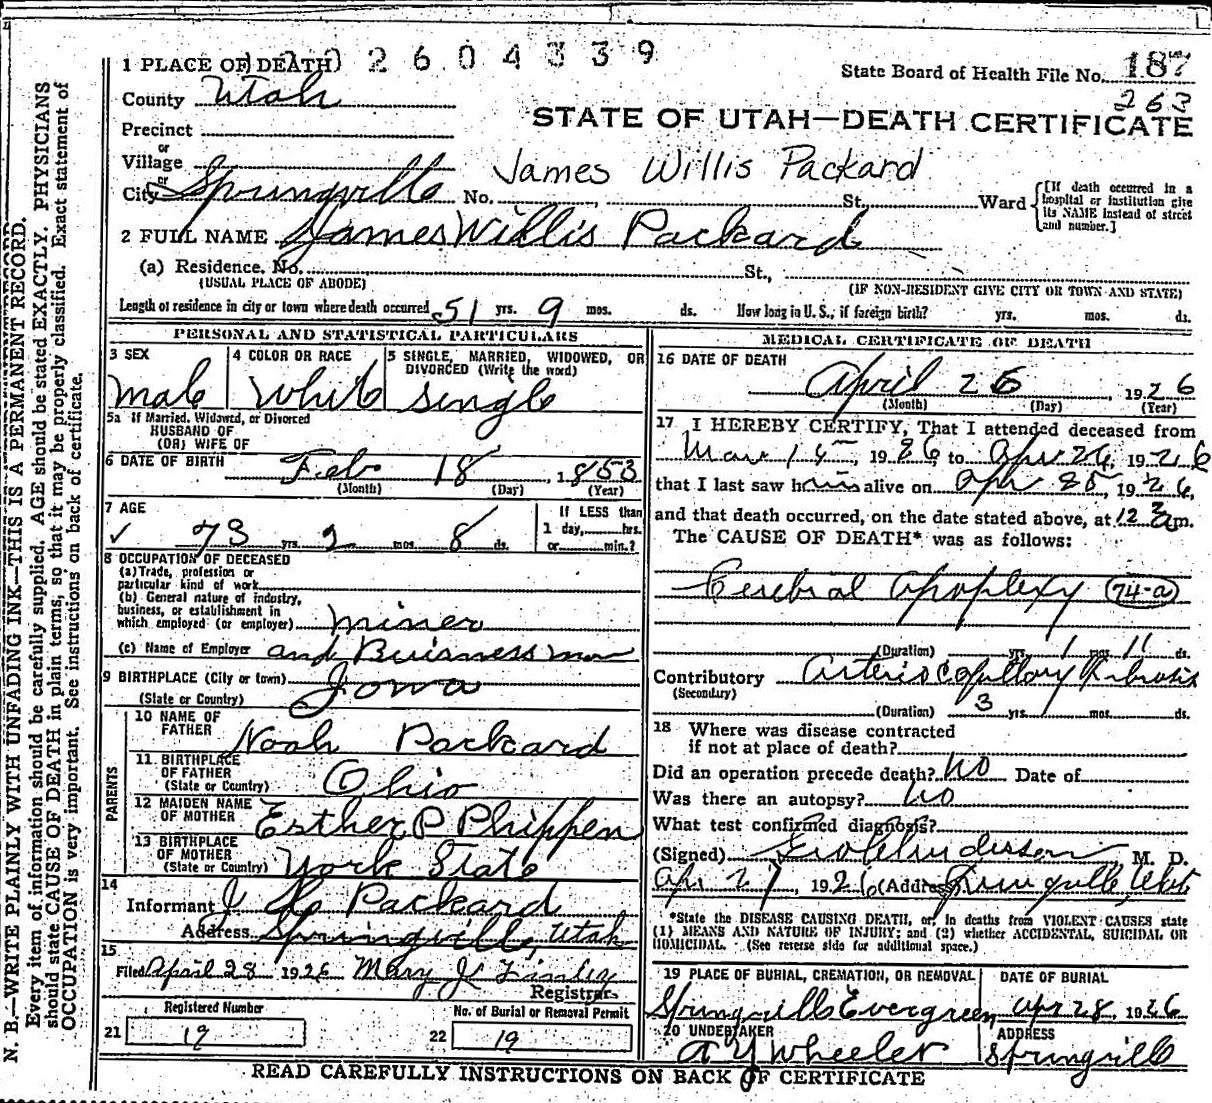 1 PLACE OF DEATH 2 6 0 4 3 3 9
State Board of Health File No. 187
263
County Utah
STATE OF UTAH—DEATH CERTIFICATE
Precinct
or
Village
James Willis Packard
or
City Springville No. St., Ward
[If death occurred in a hospital or institution give its NAME instead of street and number.]
2 FULL NAME James Willis Packard
(a) Residence. No. St.,
(USUAL PLACE OF ABODE) (IF NON-RESIDENT GIVE CITY OR TOWN AND STATE)
Length of residence in city or town where death occurred 51 yrs. 9 mos. ds. How long in U. S., if foreign birth? yrs. mos. ds.
PERSONAL AND STATISTICAL PARTICULARS
3 SEX 4 COLOR OR RACE 5 SINGLE, MARRIED, WIDOWED, OR DIVORCED (Write the word)
Male White Single
5a If Married, Widowed, or Divorced
HUSBAND OF
(OR) WIFE OF
6 DATE OF BIRTH Feb 18, 1853
(Month) (Day) (Year)
7 AGE
If LESS than
73 yrs. 2 mos. 8 ds. 1 day, hrs.
or min.?
8 OCCUPATION OF DECEASED
(a) Trade, profession or
particular kind of work
(b) General nature of industry,
business, or establishment in
which employed (or employer) Miner
(c) Name of Employer and Buisness man
9 BIRTHPLACE (City or town) Iowa
(State or Country)
PARENTS
10 NAME OF FATHER Noah Packard
11 BIRTHPLACE OF FATHER (State or Country) Ohio
12 MAIDEN NAME OF MOTHER Esther P Phippen
13 BIRTHPLACE OF MOTHER (State or Country) York State
14
Informant Packard
Address Springville, Utah
15
Filed April 28 1926 Mary J Finley
Registrar
Registered Number No. of Burial or Removal Permit
21 19 22 19
MEDICAL CERTIFICATE OF DEATH
16 DATE OF DEATH
April 26, 1926
(Month) (Day) (Year)
17 I HEREBY CERTIFY, That I attended deceased from
Mar 15, 1926, to Apr 26, 1926
that I last saw him alive on Apr 25, 1926,
and that death occurred, on the date stated above, at 12 am.
The CAUSE OF DEATH* was as follows:
Cerebral Apoplexy 74-a
(Duration) yrs. 1 mos. 11 ds.
Contributory Arterio capillary fibrosis
(Secondary)
(Duration) 3 yrs. mos. ds.
18 Where was disease contracted
if not at place of death?
Did an operation precede death? No Date of
Was there an autopsy? No
What test confirmed diagnosis?
(Signed) Anderson M. D.
Apr 27, 1926 (Address) Springville, Utah
*State the DISEASE CAUSING DEATH, or, in deaths from VIOLENT CAUSES state
(1) MEANS AND NATURE OF INJURY; and (2) whether ACCIDENTAL, SUICIDAL OR
HOMICIDAL. (See reverse side for additional space.)
19 PLACE OF BURIAL, CREMATION, OR REMOVAL DATE OF BURIAL
Springville Evergreen Apr 28, 1926
20 UNDERTAKER ADDRESS
A Y Wheeler Springville
READ CAREFULLY INSTRUCTIONS ON BACK OF CERTIFICATE
N. B.—WRITE PLAINLY WITH UNFADING INK—THIS IS A PERMANENT RECORD.
Every item of information should be carefully supplied. AGE should be stated EXACTLY. PHYSICIANS
should state CAUSE OF DEATH in plain terms, so that it may be properly classified. Exact statement of
OCCUPATION is very important. See instructions on back of certificate.